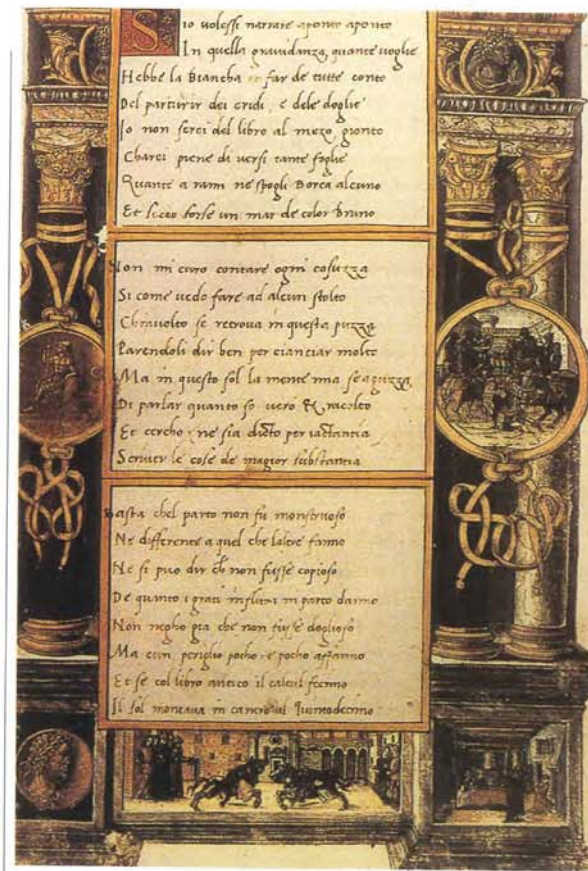 Sio volesse narrare aponto aponto
In quella gravidanza, quante voglie
Hebbe la Biancha et far de tutte conto
Del parturir dei cridi, e dele doglie
Io non serei del libro al mezo gionto
Charei piene di versi tante foglie
Quante a rami ne spogli Borea alcuno
Et secco forse un mar de color Bruno
Non mi curo contare ogni cosuzza
Si come vedo fare ad alcun stolto
Chravolto se retrova in questa puzza
Parendoli dir ben per cianciar molto
Ma in questo sol la mente mia se aguzza
Di parlar quanto so vero & racolto
Et cercho, ne sia dicto per iactantia
Scriver le cose de magior substantia
Basta chel parto non fu monstruoso
Ne differente a quel che laltre fanno
Ne si puo dir ch non fusse copioso
De quanto i grati influxi in parto danno
Non negho gia che non fusse doglioso
Ma cun periglio pocho, e pocho affanno
Et se col libro antico il calcul fermo
Il sol montava in cancro al Quintodecimo